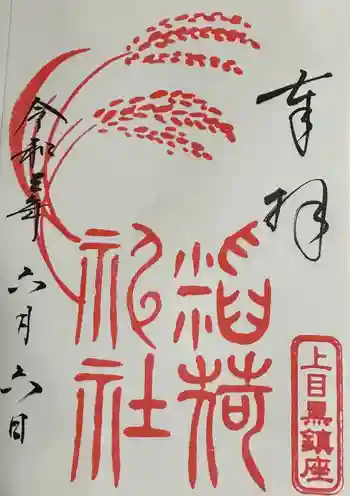 奉拝
上目黒鎮座
稲荷
祀社
令和三年
六月六日